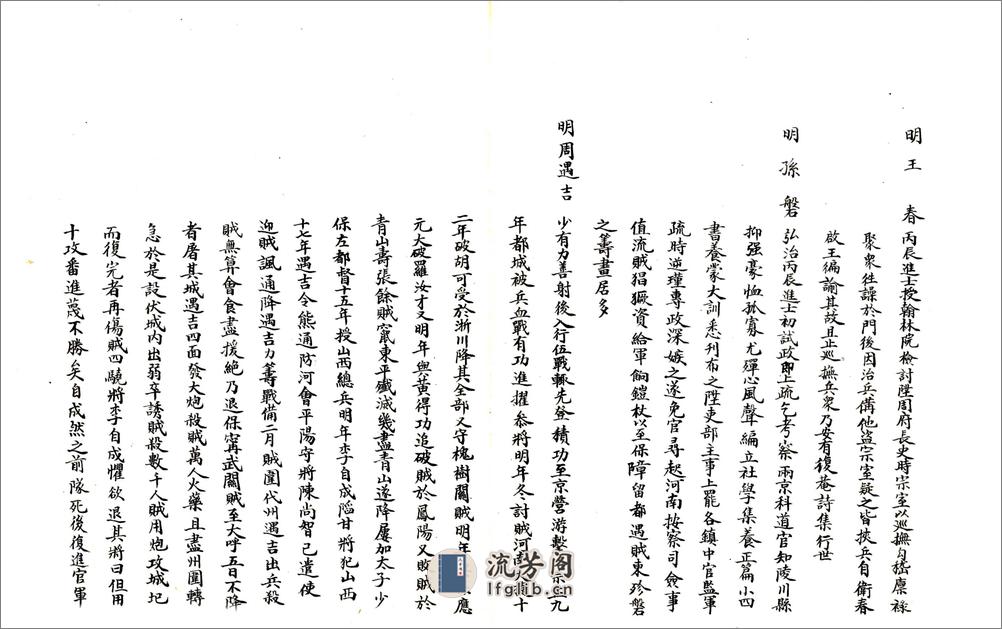 明王　春　丙辰進士授翰林院檢討陞周府長史時宗室以巡撫勾稽廩祿
聚衆往譟於門後因治兵備他盜宗室疑之皆挾兵自衛春
啟王徧諭其故且止巡撫兵衆乃安有復菴詩集行世
明孫　磐　弘治丙辰進士初試政即上疏乞考察兩京科道官知陵川縣
抑强豪恤孤寡尤殫心風聲編立社學集養正篇小四
書養蒙大訓悉刊布之陞吏部主事上罷各鎮中官監軍
疏時逆瑾專政深嫉之遂免官尋起河南按察司僉事
值流賊猖獗資給軍餉鎧杖以至保障留都遇賊東珍磐
之籌畫居多
明周遇吉　少有力善射後入行伍戰輒先登積功至京營游擊九
年都城被兵血戰有功進擢叅將明年冬討賊河十
二年破胡可受於淅川降其全部又守槐樹關賊明年應
元大破羅汝才又明年與黄得功追破賊於鳳陽又敗賊於
青山壽張餘賊竄東平殲滅幾盡青山遂降屢加太子少
保左都督十五年授山西總兵明年李自成陷甘將犯山西
十七年遇吉令熊通防河會平陽守將陳尚智已遣使
迎賊諷通降遇吉力籌戰備二月賊圍代州遇吉出兵殺
賊無算會食盡援絕乃退保甯武關賊至大呼五日不降
者屠其城遇吉四面發大炮殺賊萬人火藥且盡州圍轉
急於是設伏城内出弱卒誘賊殺數千人賊用炮攻城圮
而復完者再傷賊四驍將李自成懼欲退其將曰但用
十攻番進蔑不勝矣自成然之前隊死後復進官軍
流芳阁
lfglib.cn